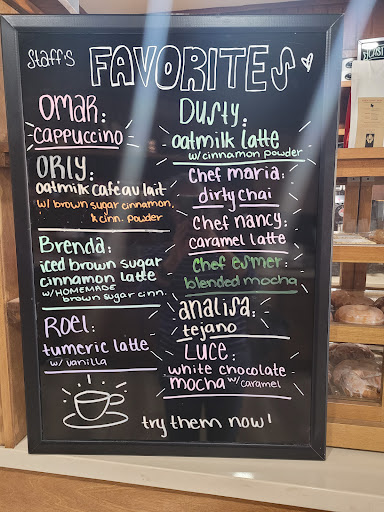 Staff's
FAVORITES
Omar:
cappuccino
Orly:
oatmilk café au lait
w/ brown sugar cinnamon
& cinn. powder
Brenda:
iced brown sugar
cinnamon latte
w/ HOMEMADE
brown sugar cinn.
Roel:
tumeric latte
w/ vanilla
Dusty:
oatmilk latte
w/ cinnamon powder
Chef maria:
dirty chai
Chef nancy:
caramel latte
Chef esmer:
blended mocha
analisa:
tejano
Luce:
white chocolate
mocha w/ caramel
try them now!